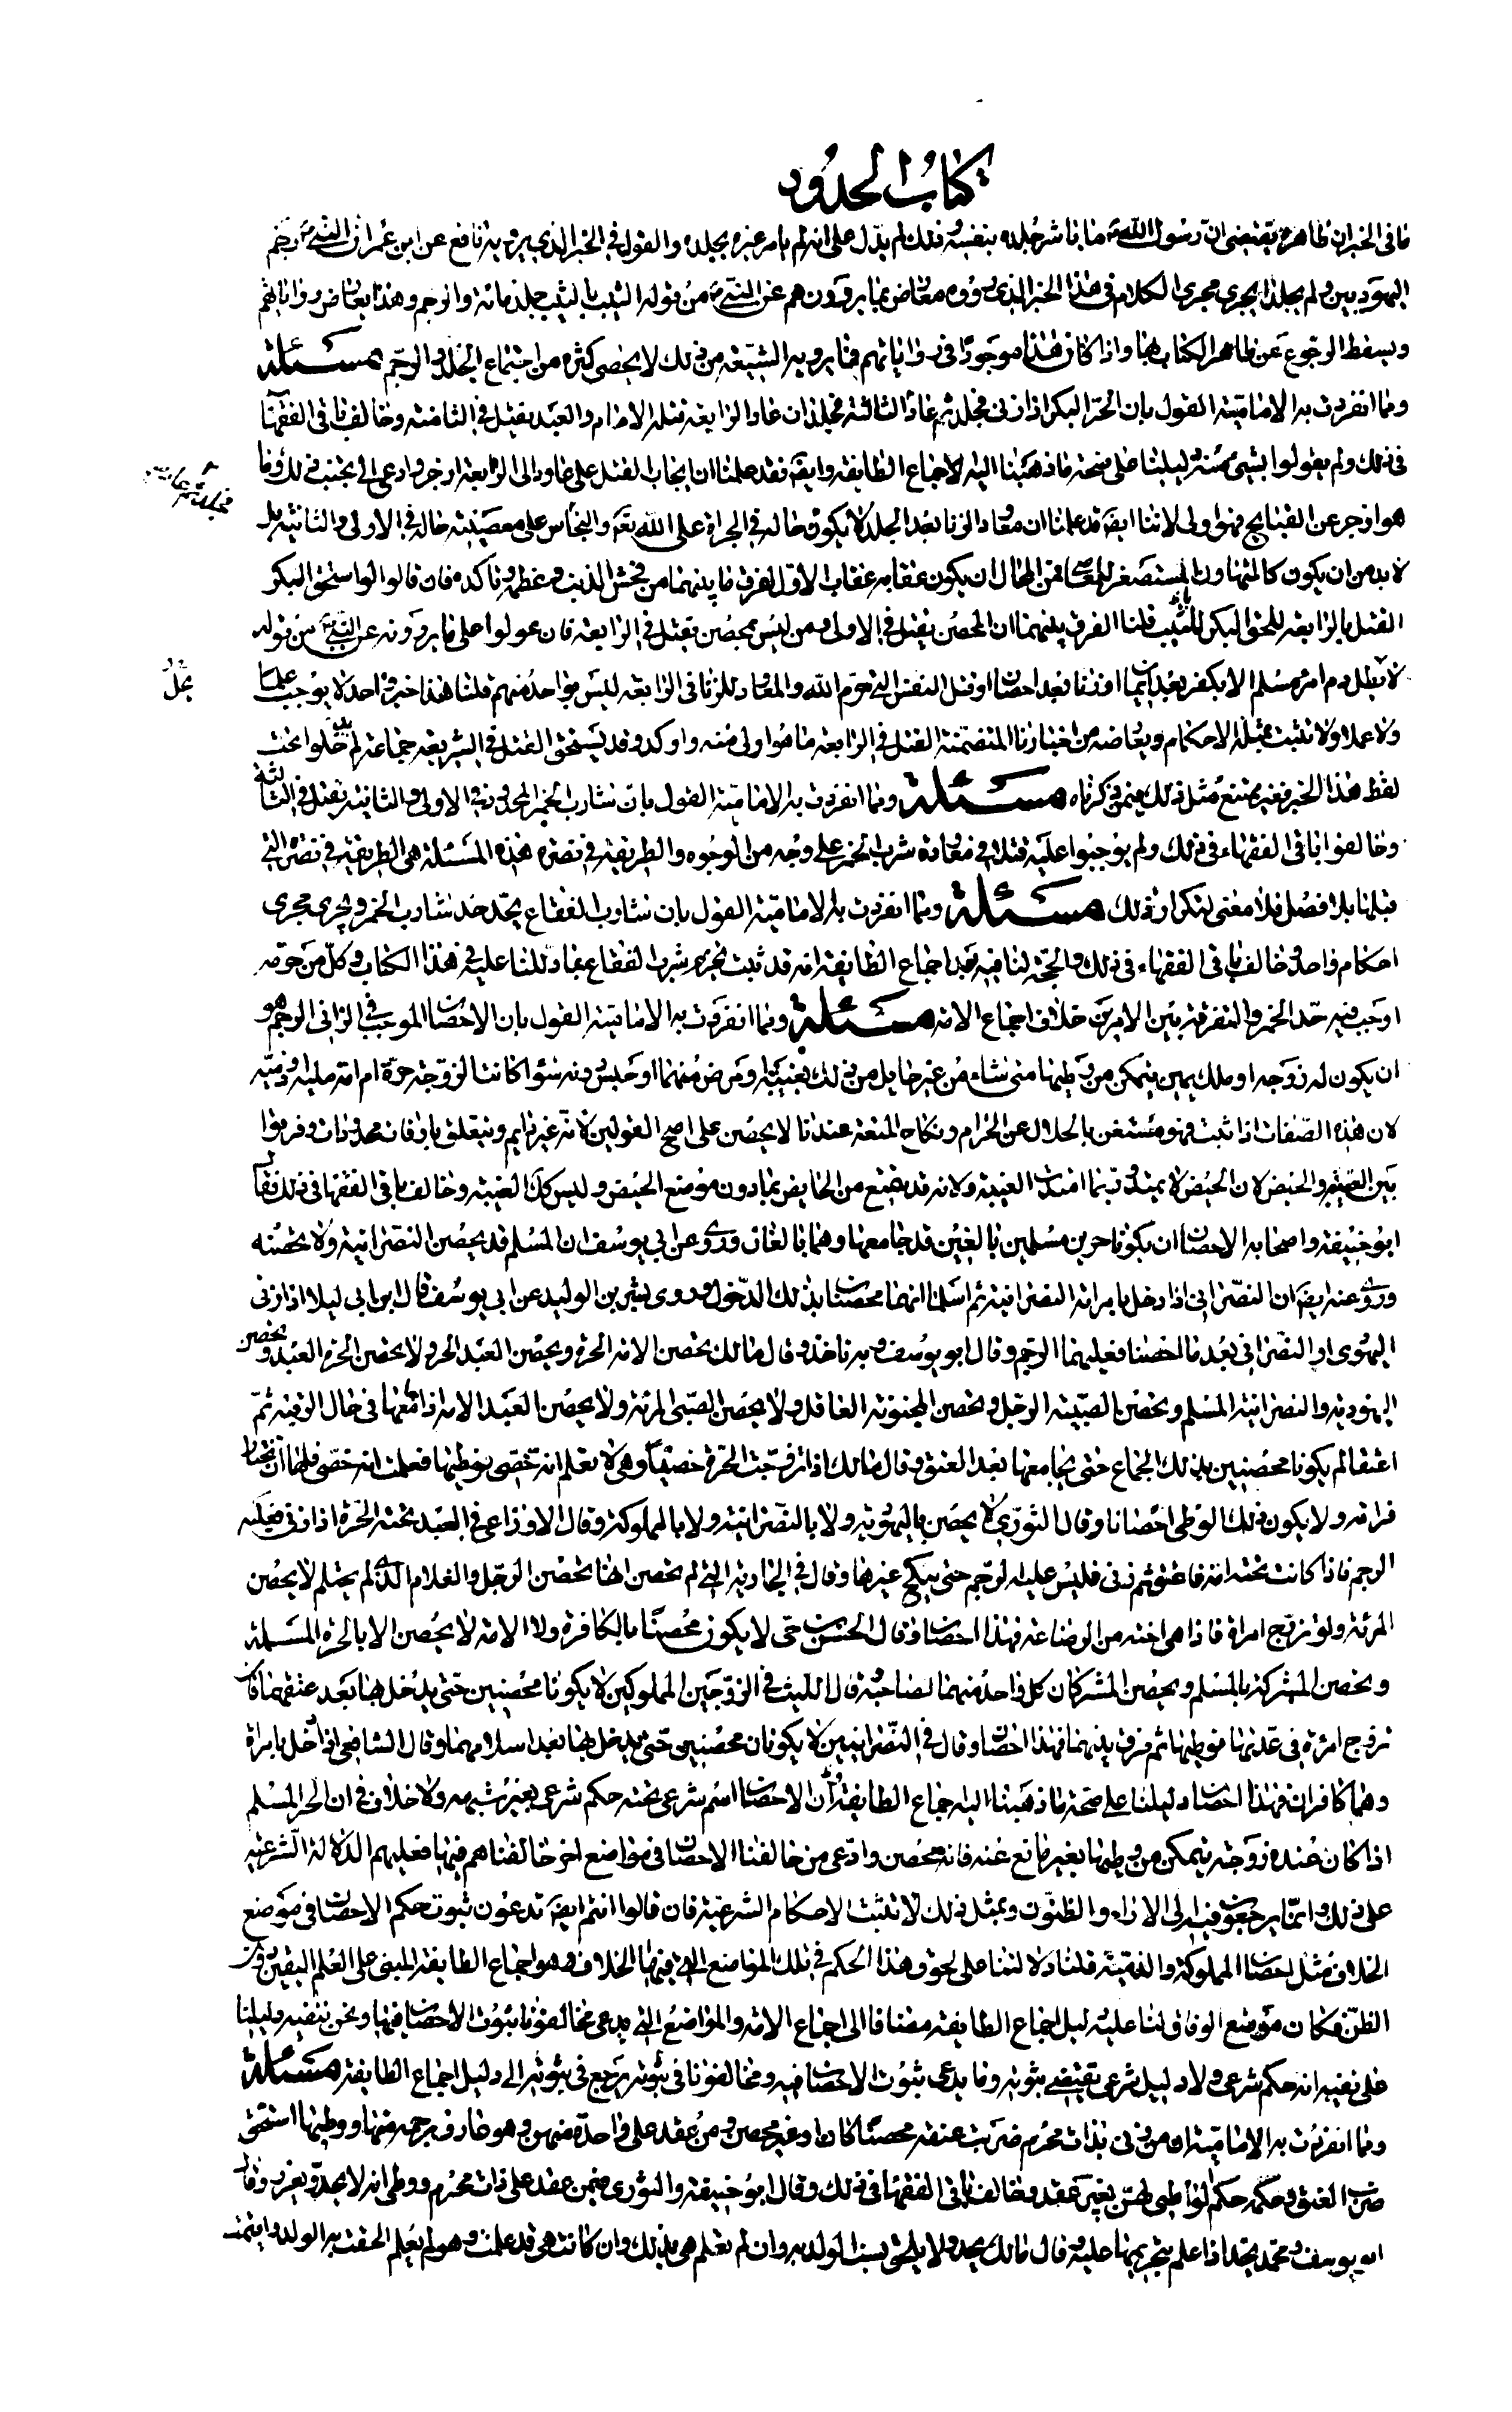 كتاب الحدود
ما في الخبر ان ظاهره يقتضي ان رسول الله ص ما باشر جلده بنفسه وذلك لم يدل على انه لم يامر غيره بجلده والقول في الخبر الذي يرويه نافع عن ابن عمر ان النبي ص رجم
اليهوديين ولم يجلد يجري مجرى الكلام في هذا الخبر الذي رووه معارض بما يروون هم عن النبي ص من قوله الثيب بالثيب جلد مائة والرجم وهذا يعارض رواياتهم
ويسقط الرجوع عن ظاهر الكتاب بها واذا كان هذا موجودا في رواياتهم فما يرويه الشيعة من ذلك لا يحصى كثرة من اجتماع الجلد والرجم مسئلة
ومما انفردت به الامامية القول بان الحر البكر اذا زنى فجلد ثم عاد الثالثة فجلد ان عاد الرابعة قتله الامام والعبد يقتل في الثامنة وخالف باقي الفقهاء
في ذلك ولم يقولوا بشيء منه دليلنا على صحة ما ذهبنا اليه الاجماع الطايفة وايضا فقد علمنا ان ايجاب القتل على عاود الى الرابعة ازجر وادعى الى تجنب ذلك وما
هو ازجر عن القبايح فهو اولى لاننا ايضا قد علمنا ان معاود الزنا بعد الجلد لا يكون حاله في الجراة على الله تعه والتجاسر على معصيته حاله في الاولى والثانية بل
لا بد من ان يكون كالمتهاون المستصغر للمعاصي فمن المحال ان يكون عقابه عقاب الاول لفرق ما بينهما من فحش الذنب وعظمه وتاكده فان قالوا لو استحق البكر
القتل بالرابعة للحق البكر بالثيب قلنا الفرق بينهما ان المحصن يقتل في الاولى ومن ليس بمحصن يقتل في الرابعة فان عولوا على ما يروونه عن النبي ص من قوله
لا يطل دم امرئ مسلم الا بكفر بعد ايمان او زنا بعد احصان او قتل النفس التي حرم الله والمعاود للزنا في الرابعة ليس بواحد منهم قلنا هذا خبر واحد لا يوجب علما
ولا عملا ولا تثبت بمثله الاحكام ويعارضه من اخبارنا المتضمنة القتل في الرابعة ما هو اولى منه واوكد وقد يستحق القتل في الشريعة جماعة لم يدخلوا تحت
لفظ هذا الخبر فغير ممتنع مثل ذلك فيمن ذكرناه مسئلة ومما انفردت به الامامية القول بان شارب الخمر المحدود في الاولى والثانية يقتل في الثالثة
وخالفوا باقي الفقهاء في ذلك ولم يوجبوا عليه قتلا في معاودة شرب الخمر على وجه من الوجوه والطريقة في نصرة هذه المسئلة هي الطريقة في نصرة التي
قبلها بلا فصل فلا معنى لتكرار ذلك مسئلة ومما انفردت به الامامية القول بان شارب الفقاع يحد حد شارب الخمر ويجري مجرى
احكام واحد وخالف باقي الفقهاء في ذلك والحجة لنا فيه بعد اجماع الطايفة انه قد ثبت تحريم شرب الفقاع بما دللنا عليه في هذا الكتاب وكل من حرمه
اوجب فيه حد الخمر والتفرقة بين الامرين خلاف اجماع الامة مسئلة ومما انفردت به الامامية القول بان الاحصان الموجب في الزاني الرجم هو
ان يكون له زوجة او ملك يمين يتمكن من وطيها متى شاء من غير حايل من ذلك بغيبة او مرض منهما او حبس دونه سواء كانت الزوجة حرة ام امة ملية وذمية
لان هذه الصفات اذا ثبت فهو مستغن بالحلال عن الحرام ونكاح المتعة عندنا لا يحصن على اصح القولين لانه غير دايم ومتعلق باوقات محدودات وفرقوا
بين الغيبة والحيض لان الحيض لا يمتد وربما امتدت الغيبة ولانه قد يمتنع من الحايض بما دون موضع الحيض وليس كك الغيبة وخالف باقي الفقها في ذلك فقال
ابو حنيفة واصحابه الاحصان ان يكونا حرين مسلمين بالغين قد جامعها وهما بالغان وروي عن ابي يوسف ان المسلم قد يحصن النصرانية ولا تحصنه
وروي عنه ايضا ان النصراني اذا دخل بامراته النصرانية ثم اسلما انهما محصنان بذلك الدخول وروى بشر بن الوليد عن ابي يوسف قال ابن ابي ليلا اذا زنى
اليهودي او النصراني بعد ما احصنا فعليهما الرجم وقال ابو يوسف وبه ناخذ وقال مالك تحصن الامة الحر ويحصن العبد الحرة ولا تحصن الحرة العبد وتحصن
اليهودية والنصرانية المسلم وتحصن الصبية الرجل وتحصن المجنونة العاقل ولا يحصن الصبي المرئة ولا يحصن العبد الامة اذا جامعها في حال الرق ثم
اعتقا لم يكونا محصنين بذلك الجماع حتى يجامعها بعد العتق وقال مالك اذا تزوجت الحرة خصيا وهي لا تعلم انه خصي فوطيها فعلمت انه خصي فلها ان تختار
فراقه ولا يكون ذلك الوطي احصانا وقال الثوري لا يحصن باليهودية ولا بالنصرانية ولا بالمملوكة وقال الاوزاعي في العبد تحته الحرة اذا زنى فعليه
الرجم فاذا كانت تحته امة فاعتق ثم زنى فليس عليه الرجم حتى ينكح غيرها وقال في الجارية التي لم تحصن انها تحصن الرجل والغلام الذي لم يحتلم لا يحصن
المرئة ولو تزوج امراة فاذا هي اخته من الرضاعة فهذا احصان وقال الحسن بن حي لا يكون محصنا بالكافرة ولا الامة لا يحصن الا بالحرة المسلمة
وتحصن المشركة بالمسلم ويحصن المشركان كل واحد منهما لصاحبه قال الليث في الزوجين المملوكين لا يكونا محصنين حتى يدخل بها بعد عتقهما فان
تزوج امرئة في عدتها فوطيها ثم فرق بينهما فهذا احصان وقال في النصرانيين لا يكونان محصنين حتى يدخل بها بعد اسلامهما وقال الشافعي اذا دخل بامراة
وهما كافران فهذا احصان دليلنا على صحة ما ذهبنا اليه اجماع الطايفة ان الاحصان اسم شرعي تحته حكم شرعي بغير شبهه ولا خلاف في ان الحر المسلم
اذا كان عنده زوجة يتمكن من وطيها بغير مانع عنه فانه محصن وادعى من خالفنا الاحصان في مواضع اخر خالفناهم فيها فعليهم الدلالة الشرعية
على ذلك وانما يرجعون فيه الى الاراء والظنون وبمثل ذلك لا تثبت الاحكام الشرعية فان قالوا انتم ايضا تدعون ثبوت حكم الاحصان في موضع
الخلاف مثل احصان المملوكة والذمية قلنا دلالتنا على لحوق هذا الحكم في تلك المواضع التي فيها الخلاف وهو اجماع الطايفة المبني على العلم اليقين دون
الظن فكان موضع الوفاق لنا عليه دليل اجماع الطايفة مضافا الى اجماع الامة والمواضع التي يدعي مخالفونا ثبوت الاحصان فيها ونحن ننفيه دليلنا
على نفيه انه حكم شرعي ولا دليل شرعي يقتضي ثبوته وما يدعى ثبوت الاحصان فيه ومخالفونا في ثبوته يرجع في ثبوته الى دليل اجماع الطايفة مسئلة
ومما انفردت به الامامية ان من زنى بذات محرم ضربت عنقه محصنا كان او غير محصن ومن عقد على واحدة منهن وهو عارف برحمه منها ووطيها استحق
ضرب العنق وحكمه حكم الواطي لهن بغير عقد وخالف باقي الفقها في ذلك وقال ابو حنيفة والثوري فيمن عقد على ذات محرم ووطي انه لا يحد ويعزر وقال
ابو يوسف ومحمد يحد اذا علم بتحريمها عليه وقال مالك يحد ولا يلحق نسب الولد به وان لم تعلم هي بذلك وان كانت هي قد علمت وهو لم يعلم الحقت به الولد واقيمت